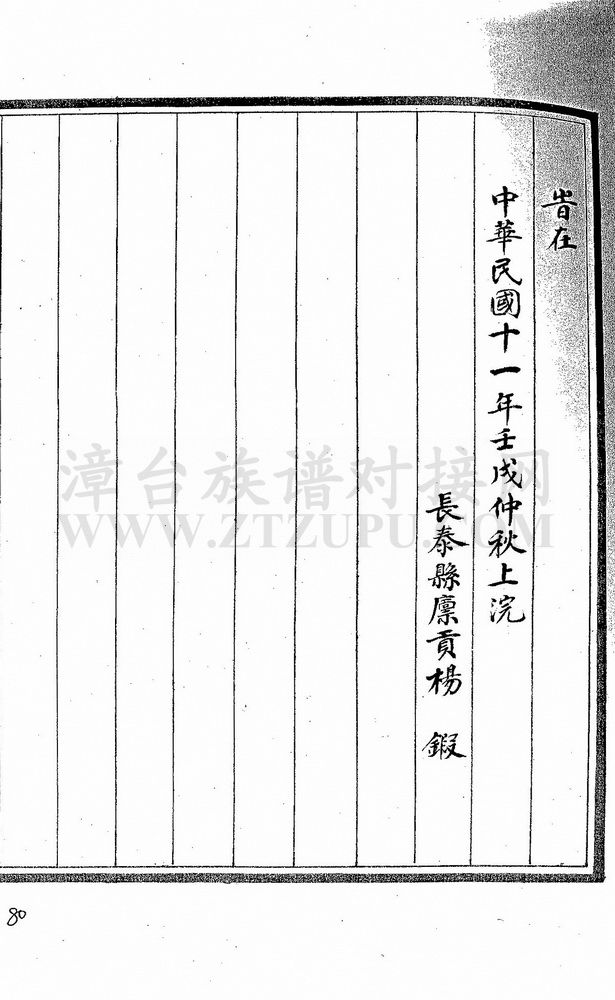 旹在
中華民國十一年壬戌仲秋上浣
長泰縣廪貢楊 鍜
漳台族谱对接网
WWW.ZTZUPU.COM
80